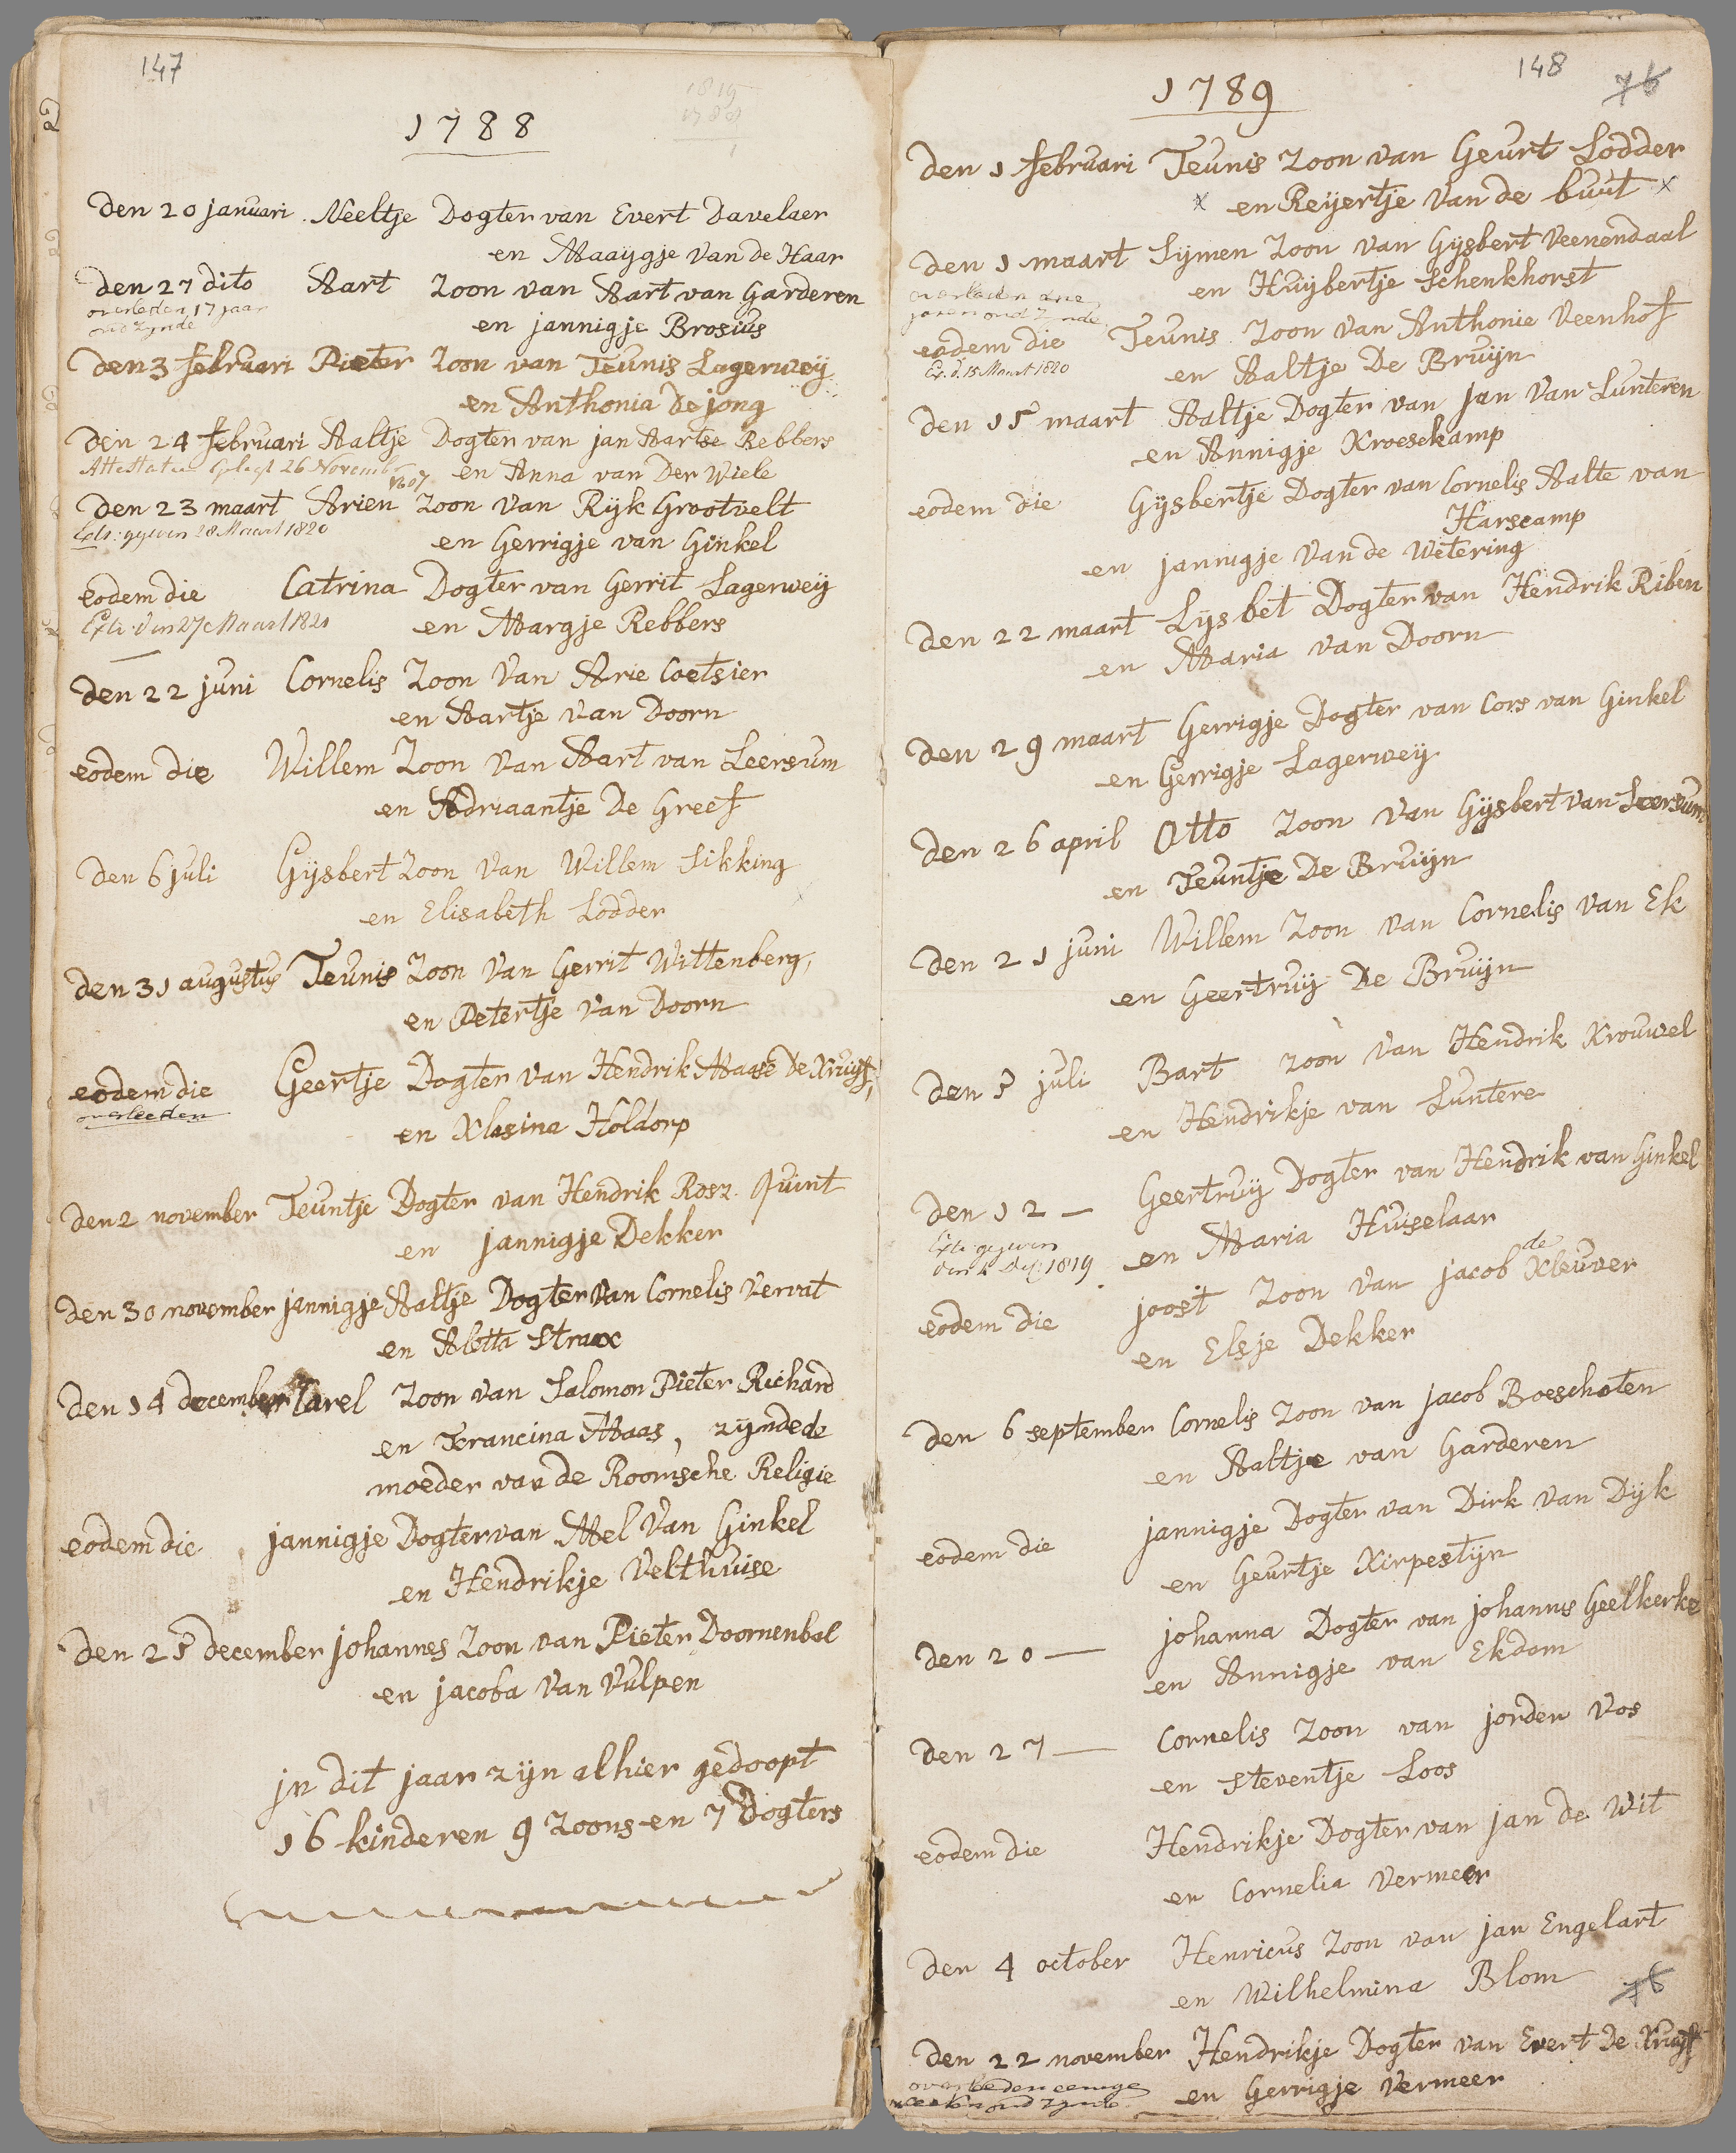 147
1788
den 20 januari Neeltje Dogter van Evert Davelaer
en Maaygje van de Haar
den 27 dito Aart Zoon van Aart van Garderen
overleden 17 jaar
oud zynde
en jannigje Brosius
den 3 februari Pieter Zoon van Teunis Lagerweij
en Anthonia De jong
den 24 februari Aaltje Dogter van jan Aartse Rebbers
Attestatie 26 Novemb
1807
en Anna van Der Wiele
den 23 maart Arien Zoon van Rijk Grootvelt
gegeven 28 Maart 1820
en Gerrigje van Ginkel
eodem die Catrina Dogter van Gerrit Lagerweij
Extr. den 27 Maart 1820
en Margje Rebbers
den 22 juni Cornelis Zoon van Arie Coetsier
en Aartje van Doorn
eodem die Willem Zoon van Aart van Leersum
en Adriaantje De Greef
den 6 juli Gijsbert Zoon van Willem Sikking
en Elisabeth Lodder
den 31 augustus Teunis Zoon van Gerrit Wittenberg,
en Petertje van Doorn
eodem die Geertje Dogter van Hendrik Maase De Kruijf,
overleeden
en Klasina Holdorp
den 2 november Teuntje Dogter van Hendrik Rosz. Quint
en jannigje Dekker
den 30 november jannigje Aaltje Dogter van Cornelis Vervat
en Aletta Strax
den 14 december Carel Zoon van Salomon Pieter Richard
en Francina Maas, zynde de
moeder van de Roomsche Religie
eodem die jannigje Dogter van Mel van Ginkel
en Hendrikje Velthuise
den 25 december johannes Zoon van Pieter Doornenbal
en jacoba van Vulpen
jn dit jaar zijn alhier gedoopt
16 kinderen 9 Zoons en 7 Dogters
148
76
1789
den 1 februari Teunis Zoon van Geurt Lodder
x en Reijertje van de buut x
den 1 maart Sijmen Zoon van Gijsbert Veenendaal
overleden drie
jaren oud zynde
en Huijbertje Schenkhorst
eodem die Teunis Zoon van Anthonie Veenhof
Ex. d. 15 Maart 1820
en Aaltje De Bruijn
den 15 maart Aaltje Dogter van jan van Lunteren
en Annigje Kroesekamp
eodem die Gijsbertje Dogter van Cornelis Aalte van
Harscamp
en jannigje van de Wetering
den 22 maart Lijsbet Dogter van Hendrik Riben
en Maria van Doorn
den 29 maart Gerrigje Dogter van Cors van Ginkel
en Gerrigje Lagerweij
den 26 april Otto Zoon van Gijsbert van Leersum
en Teuntje De Bruijn
den 21 juni Willem Zoon van Cornelis van Ek
en Geertruij De Bruijn
den 5 juli Bart zoon van Hendrik Krouwel
en Hendrikje van Luntere
den 12 — Geertruij Dogter van Hendrik van Ginkel
Extr. gegeven
1819
en Maria Huiselaar
eodem die joost Zoon van jacob de Kleuver
en Elsje Dekker
den 6 september Cornelis Zoon van jacob Boeschoten
en Aaltje van Garderen
eodem die jannigje Dogter van Dirk van Dijk
en Geurtje Kirpestijn
den 20 — johanna Dogter van johannes Geelkerke
en Annigje van Ekdom
den 27 — Cornelis Zoon van jorden Vos
en Steventje Loos
eodem die Hendrikje Dogter van jan de Wit
en Cornelia Vermeer
den 4 october Henricus Zoon van jan Engelart
en Wilhelmina Blom
76
den 22 november Hendrikje Dogter van Evert De Kruijf
overleden eenige
weeken oud zynde
en Gerrigje Vermeer